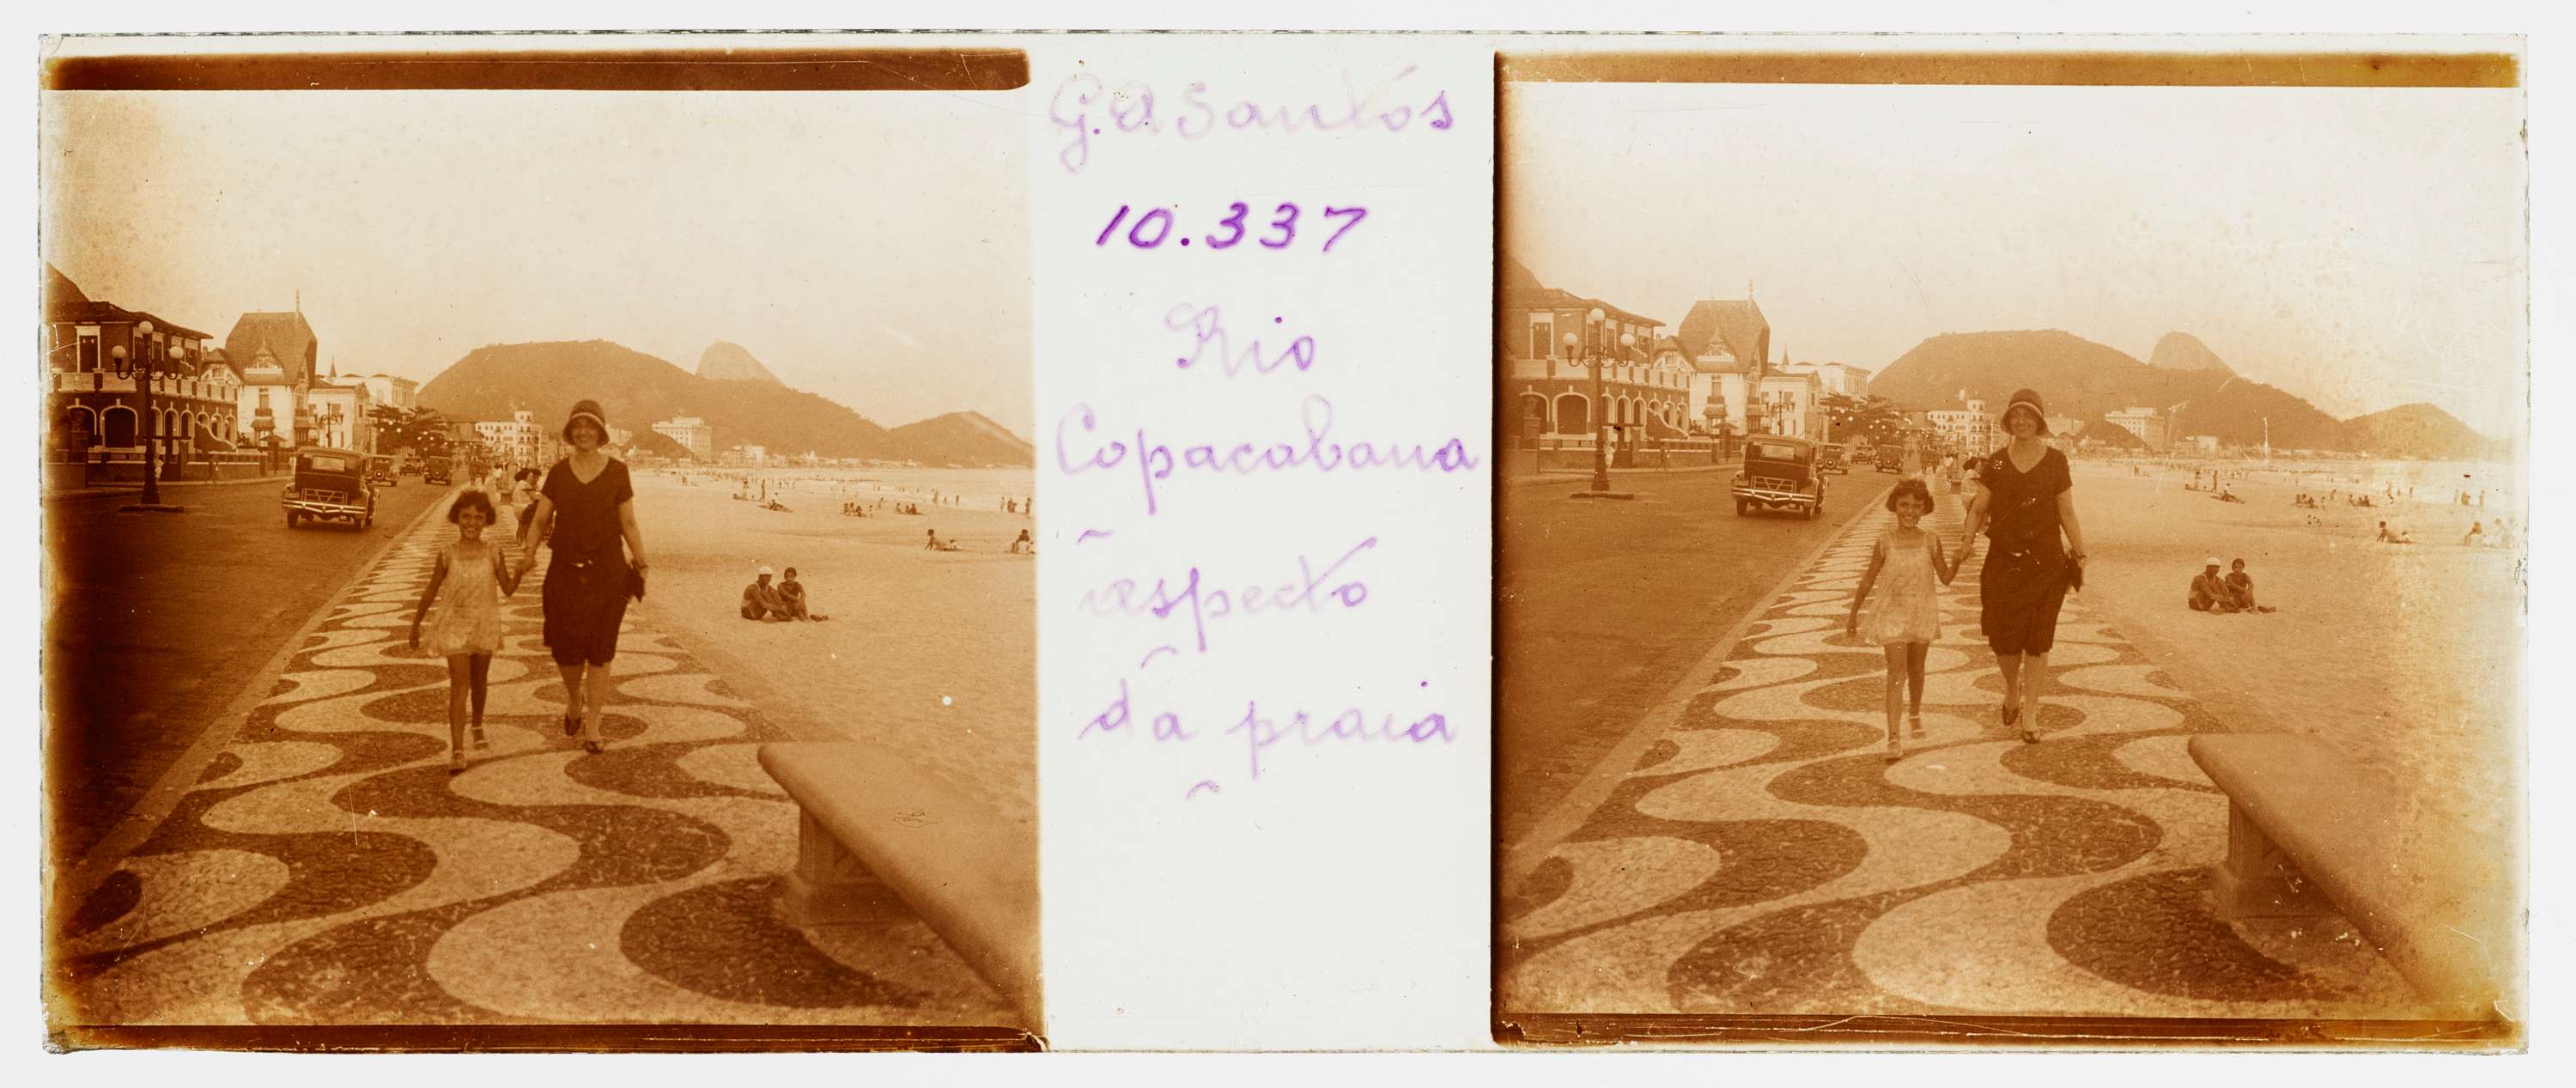 G.A Santos
10.337
Rio
Copacabana
aspecto
da praia